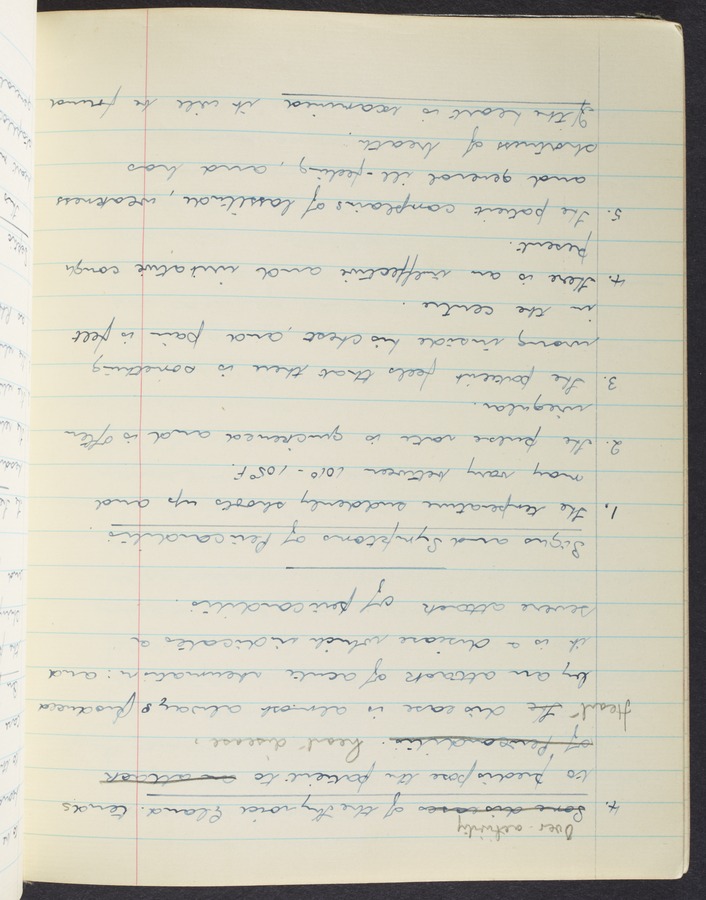 Over-activity
4. Some diseases of the Thyroid Gland. tends
to predispose the patient to an attack
of Pericarditis. heart disease.
Heart The disease is almost always produced
by an attack of acute rheumatism: and
it is a disease which indicates a
severe attack of pericarditis.
Signs and Symptoms of Pericarditis
1. The temperature suddenly shoots up and
may vary between 101° - 105°F.
2. The pulse rate is quickened and is often
irregular.
3. The patient feels that there is something
wrong inside his chest, and pain is felt
in the centre.
4. There is an ineffective and irritative cough
present.
5. The patient complains of lassitude, weakness
and general ill-feeling, and has
shortness of breath.
If the heart is examined it will be found